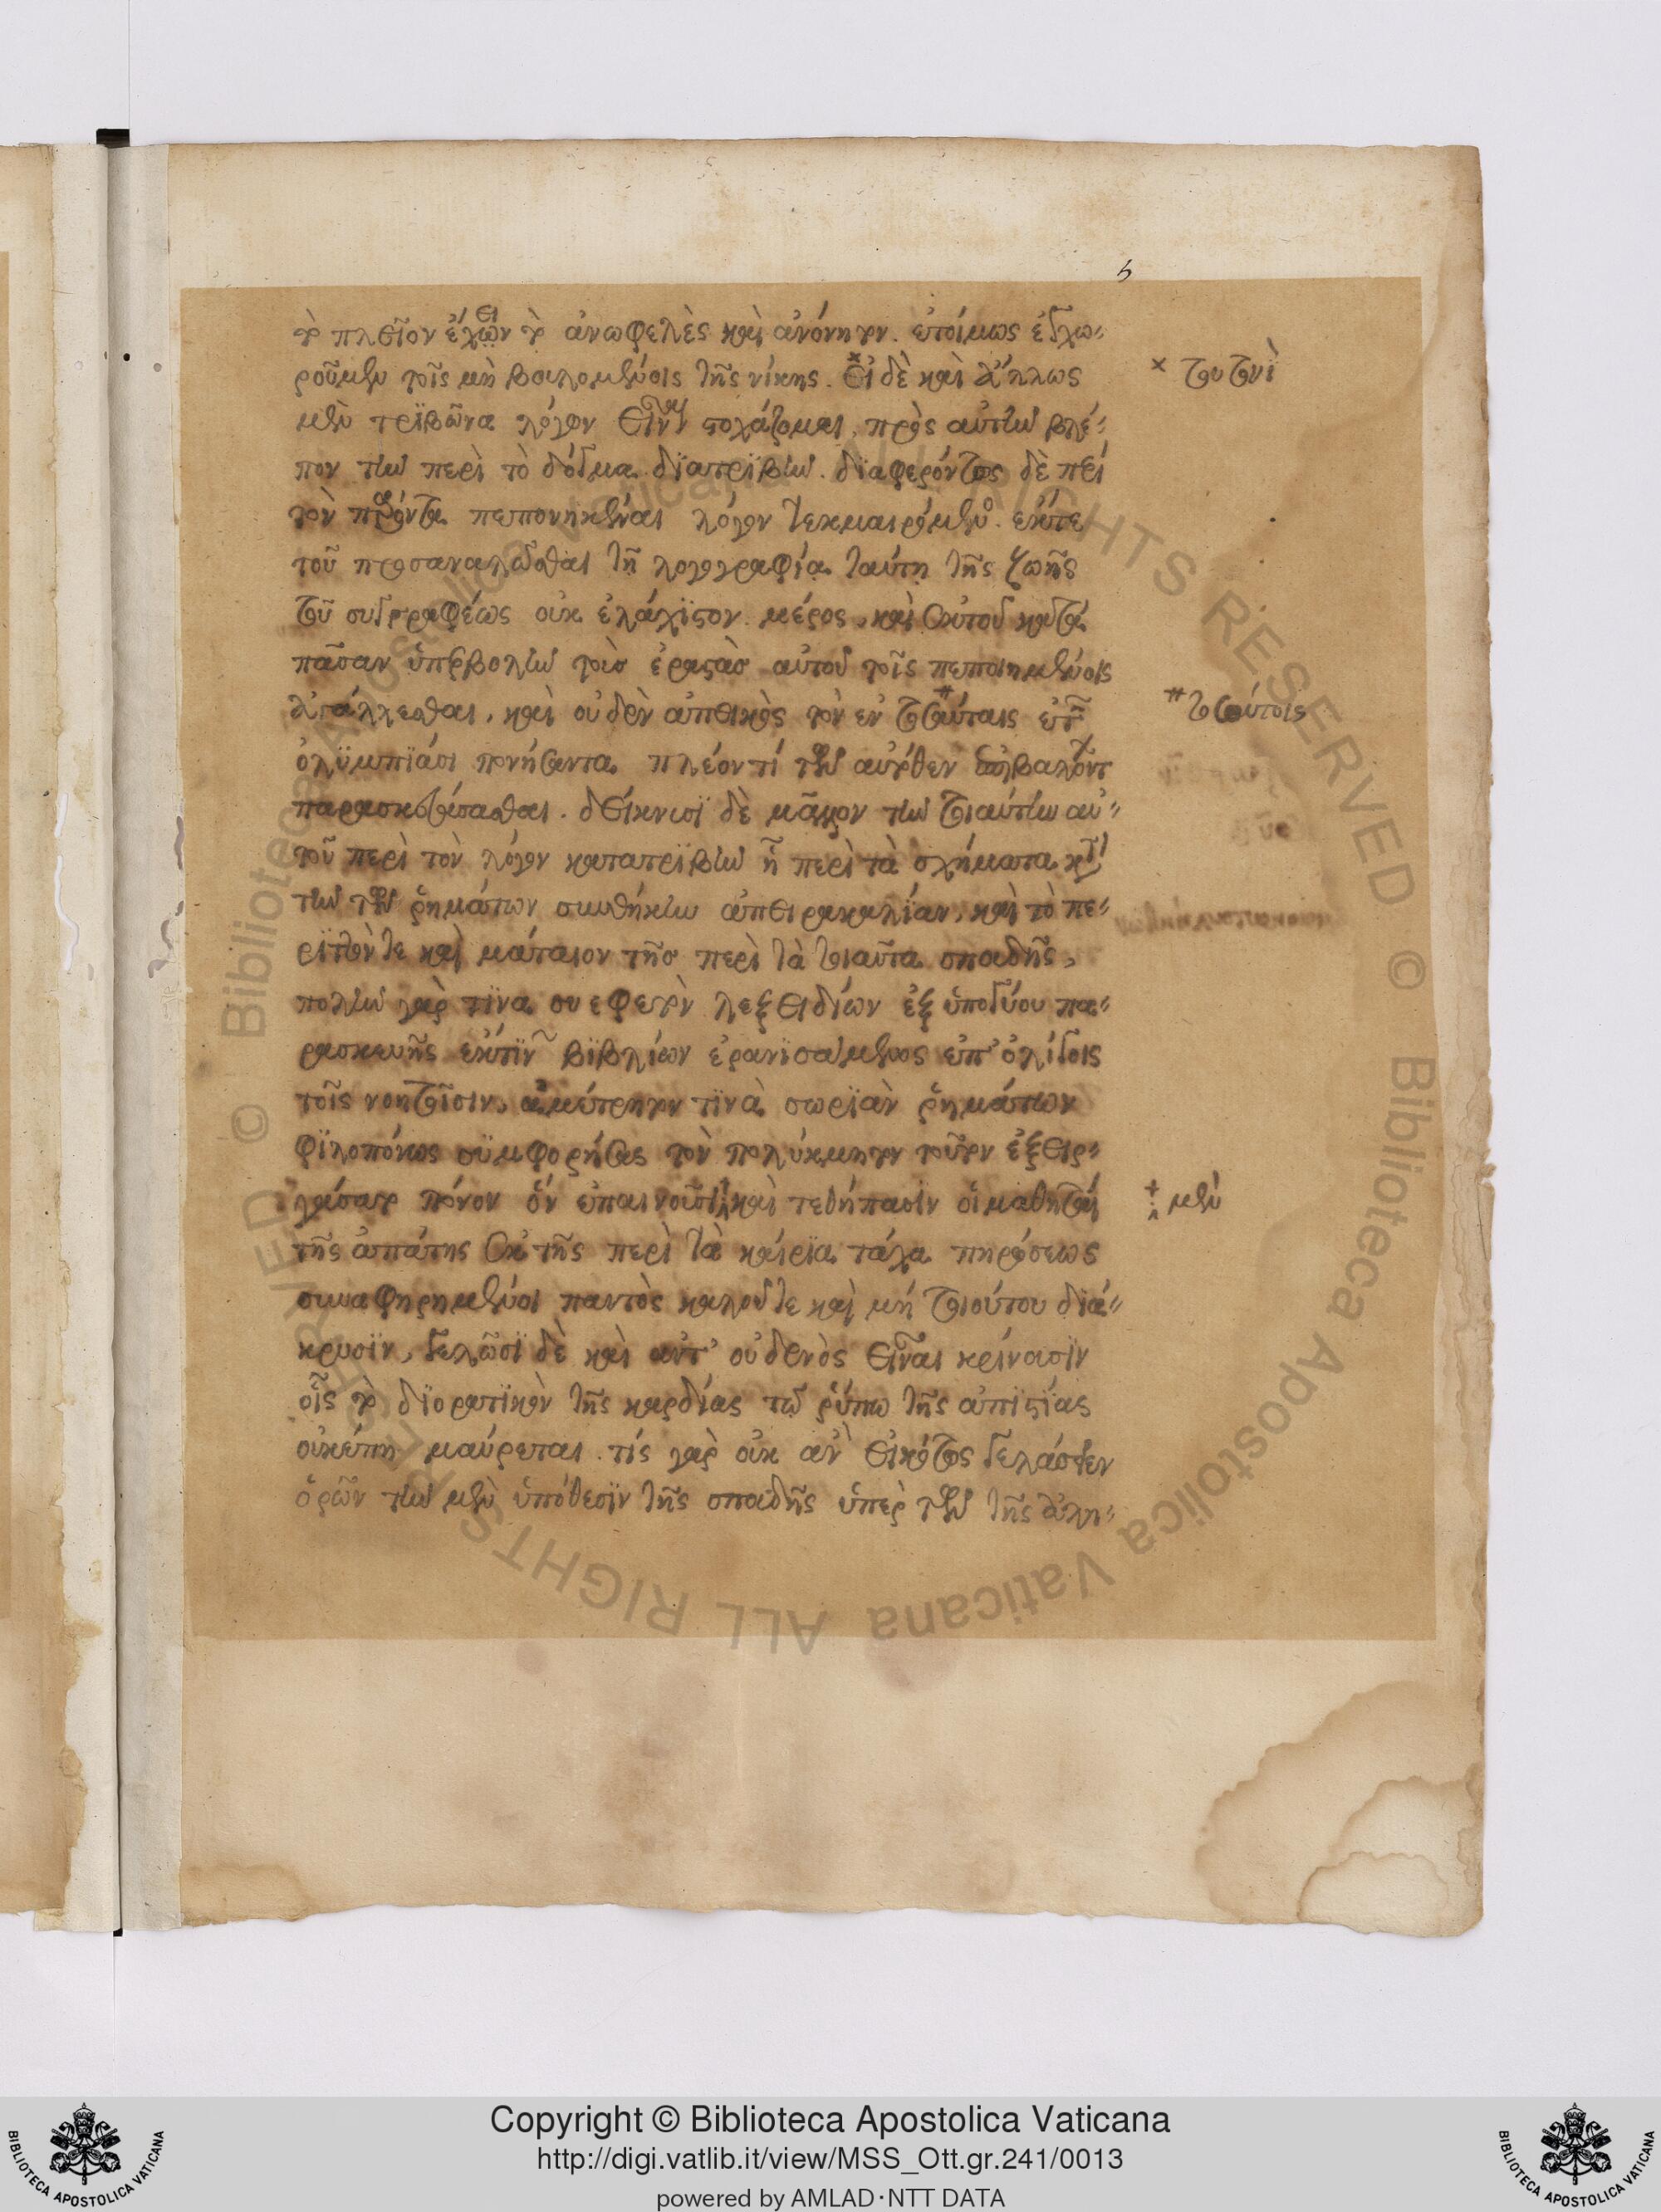 5
τὸ πλεῖον ἔχειν τὸ ἀνωφελὲς καὶ ἀνόνητον. ἑτοίμως ἐγχω-
ροῦμεν τοῖς μὴ βουλομένοις τῆς νίκης. εἰ δὲ καὶ ἄλλως
× τουτονὶ
μὲν τρϊβῶνα λόγον εἶναι στοχάζομαι, πρὸς αὐτὴν βλέ-
πων τὴν περὶ τὸ δόγμα διατρϊβὴν. διαφερόντως δὲ περὶ
τὸν παρόντα πεπονηκέναι λόγον τεκμαιρόμενος. ἔκ τε
τοῦ προσαναλῶσθαι τῇ λογογραφίᾳ ταύτῃ τῆς ζωῆς
τοῦ συγγραφέως οὐκ ἐλάχϊστον μέρος, καὶ ἐκ τοῦ κατὰ
πᾶσαν ὑπερβολὴν τοὺσ ἐραστὰσ αὐτοῦ τοῖς πεποιημένοις
ἀγάλλεσθαι, καὶ οὐδὲν ἀπεικὸς τὸν ἐν τοσαύταις
# τοσούτοις
ὀλϋμπϊάσι πονήσαντα πλέον τί τῶν αὐτόθεν
παρασκευάσασθαι. δείκνυσϊ δὲ μᾶλλον τὴν τοιαύτην αὐ-
τοῦ περὶ τὸν λόγον κατατρϊβὴν ἡ περὶ τὰ σχήματα κατὰ
τὴν τῶν ῥημάτων συνθήκην ἀπειροκαλϊαν, καὶ τὸ πε-
ρϊττόν τε καὶ μάταιον τῆσ περὶ τὰ τοιαῦτα σπουδῆς,
πολὺν γάρ τϊνα συρφετὸν λεξειδίων ἐξ ὑπογύου πα-
ρασκευῆς ἔκ τϊνων βϊβλίων ἐρανϊσάμενος ἐπ' ὀλίγοις
τοῖς νοηθεῖσιν, ἀμέτρητόν τϊνα σωρεϊὰν ῥημάτων
φϊλοπόνως συμφορήσας τὸν πολύκμητον τοῦτον ἐξειρ-
γάσατο πόνον ὃν ἐπαινοῦσι καὶ τεθήπασιν οἱ μαθηταὶ
μὲν
τῆς ἀπάτης ἐκ τῆς περὶ τὰ καίρϊα τάχα πηρώσεως
συναφηρημένοι παντὸς καλοῦ τε καὶ μὴ τοιούτου διά-
κρισϊν, γελῶσϊ δὲ καὶ ἀντ' οὐδενὸς εἶναι κρίνουσϊν
οἷς τὸ διορατϊκὸν τῆς καρδίας τῷ ῥύπῳ τῆς ἀπϊστίας
οὐκέτι μαύρεται. τίς γὰρ οὐκ ἂν εἰκότως γελάσειεν
ὁρῶν τὴν μὲν ὑπόθεσϊν τῆς σπουδῆς ὑπὲρ τῶν τῆς ἀλη-
© Biblioteca Apostolica Vaticana ALL RIGHTS RESERVED © Biblioteca Apostolica Vaticana ALL RIGHTS RESERVED
Copyright © Biblioteca Apostolica Vaticana
http://digi.vatlib.it/view/MSS_Ott.gr.241/0013
powered by AMLAD·NTT DATA
BIBLIOTECA APOSTOLICA VATICANA
BIBLIOTECA APOSTOLICA VATICANA